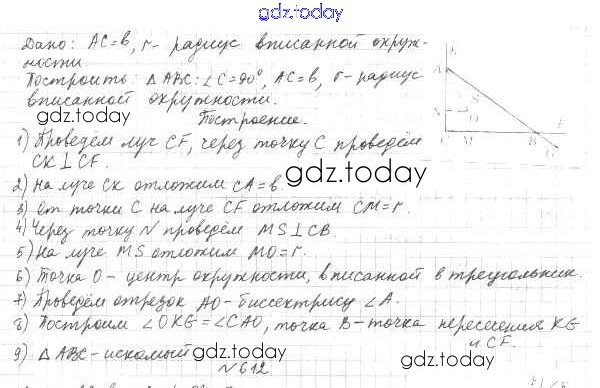 gdz.today
Дано: AC=b, r- радиус вписанной окруж-
ности.
Построить: △ABC: ∠C=90°, AC=b, r-радиус
вписанной окружности.
gdz.today
Построение.
1) Проведём луч CF, через точку C проведём
CK⊥CF.
gdz.today
2) На луче CK отложим CA=b.
3) От точки C на луче CF отложим CM=r.
4) Через точку N проведём MS⊥CB.
5) На луче MS отложим MO=r.
6) Точка O- центр окружности, вписанной в треугольник.
7) Проведём отрезок AO-биссектрису ∠A.
8) Построим ∠OKG=∠CAO, точка B-точка пересечения KG
и CF.
9) △ABC-искомый
gdz.today
gdz.today
N612
K
A
N
S
O
C M B F
G